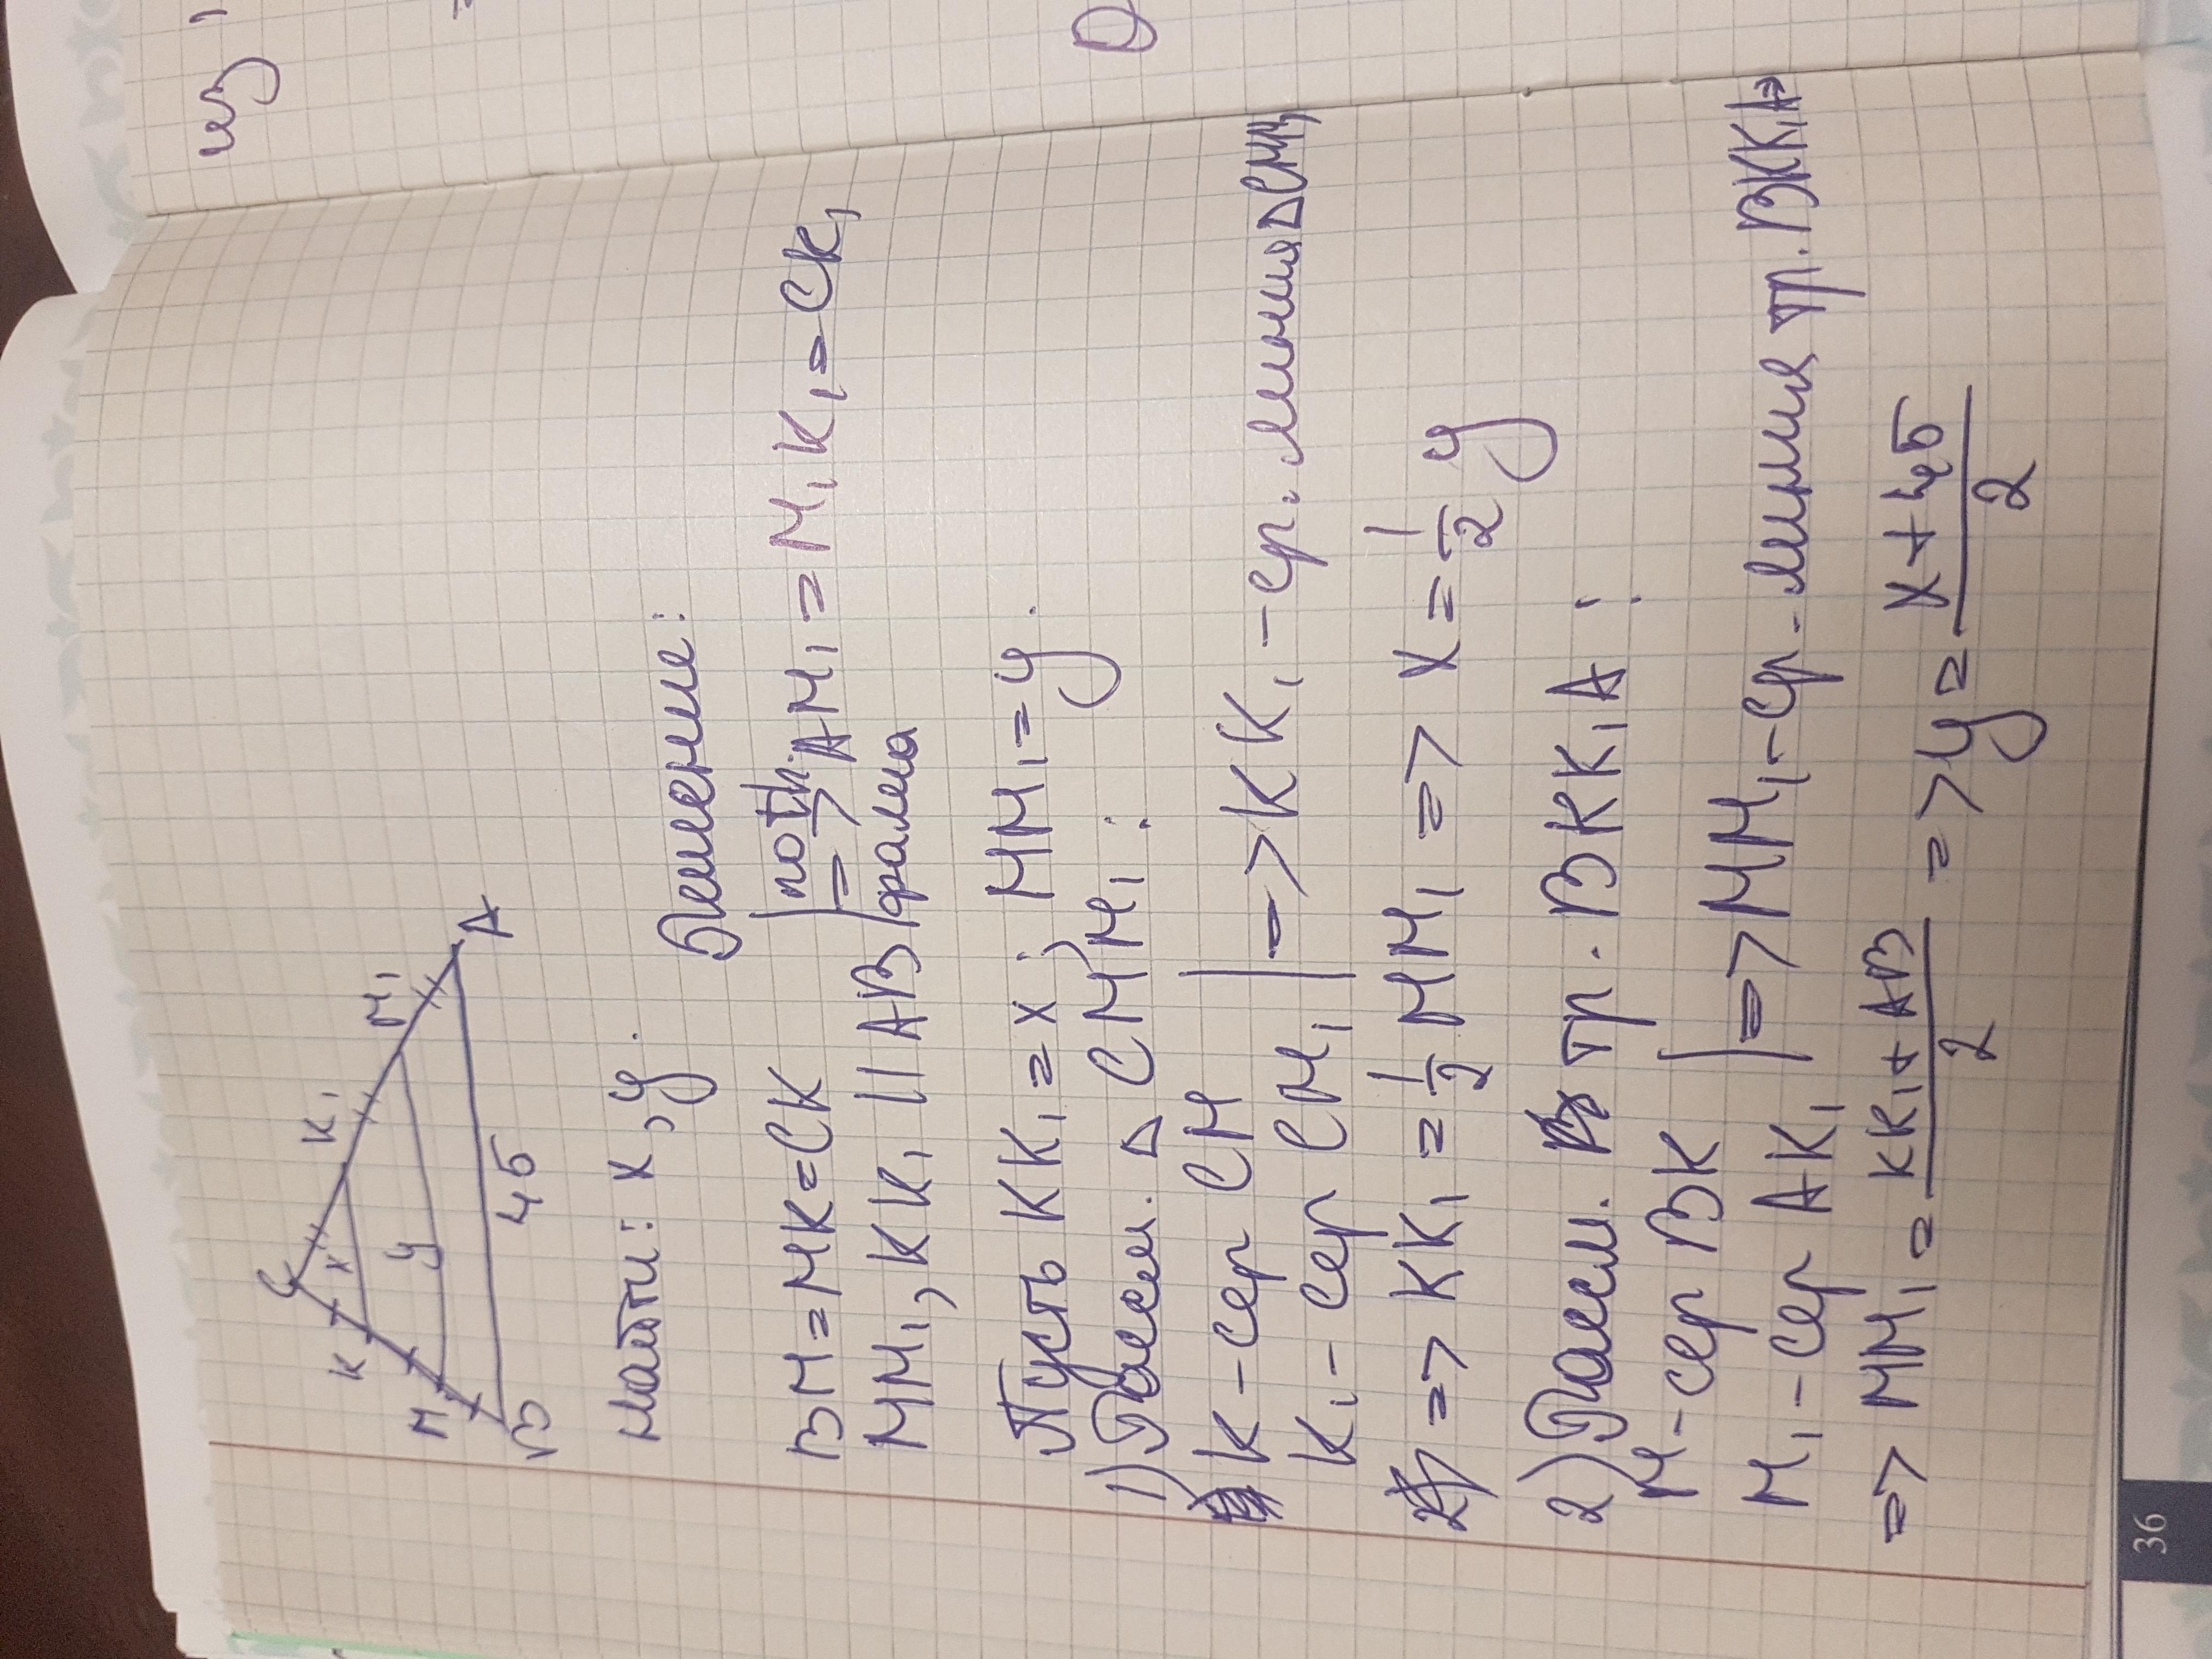 C
K
K₁
x
M
M₁
y
B
A
45
Найти: x, y.
Решение:
BM=MK=CK | по th. => AM₁=M₁K₁=CK₁
MM₁, KK₁ || AB | фалеса
Пусть KK₁=x; MM₁=y.
1) Рассм. Δ CMM₁:
K-сер CM | => KK₁-ср. линия Δ CMM₁
K₁-сер CM₁ |
=> KK₁ = 1/2 MM₁ => x = 1/2 y
2) Рассм. тр. BKK₁A:
M-сер BK | => MM₁-ср. линия тр. BKK₁A =>
M₁-сер AK₁ |
=> MM₁ = (KK₁+AB)/2 => y = (x+45)/2
36
из
=